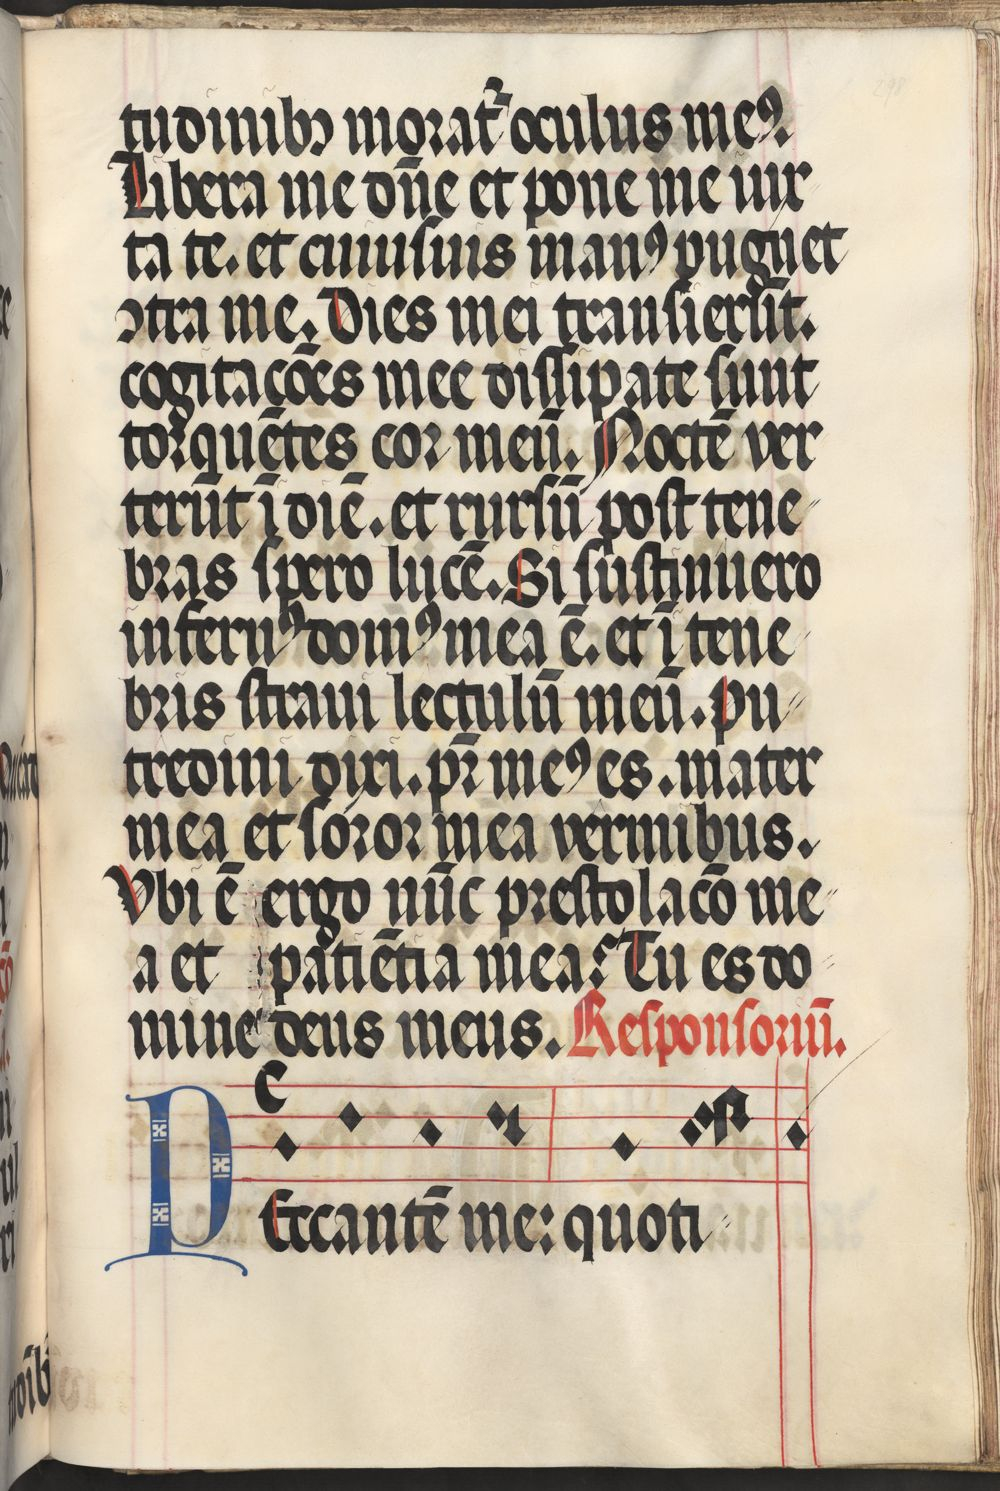 tudinibꝫ morat᷑ oculus meꝰ.
Libera me dn̄e et pone me iux
ta te. et cuiusuis manꝰ pugnet
ꝯtra me. Dies mei transierūt.
cogitacōēs mee dissipate sunt
torquētes cor meū. Noctē ver
terūt ī diē. et rursū post tene
bras spero lucē. Si sustinuero
infernꝰ domꝰ mea ē. et ī tene
bris straui lectulū meū. Pu
tredini dixi. pr̄ meꝰ es. mater
mea et soror mea vermibus.
Vbi ē ergo nūc prestolacō me
a et patiētia mea? Tu es do
mine deus meus. Responsoriū.
PEccantē me: quoti
298